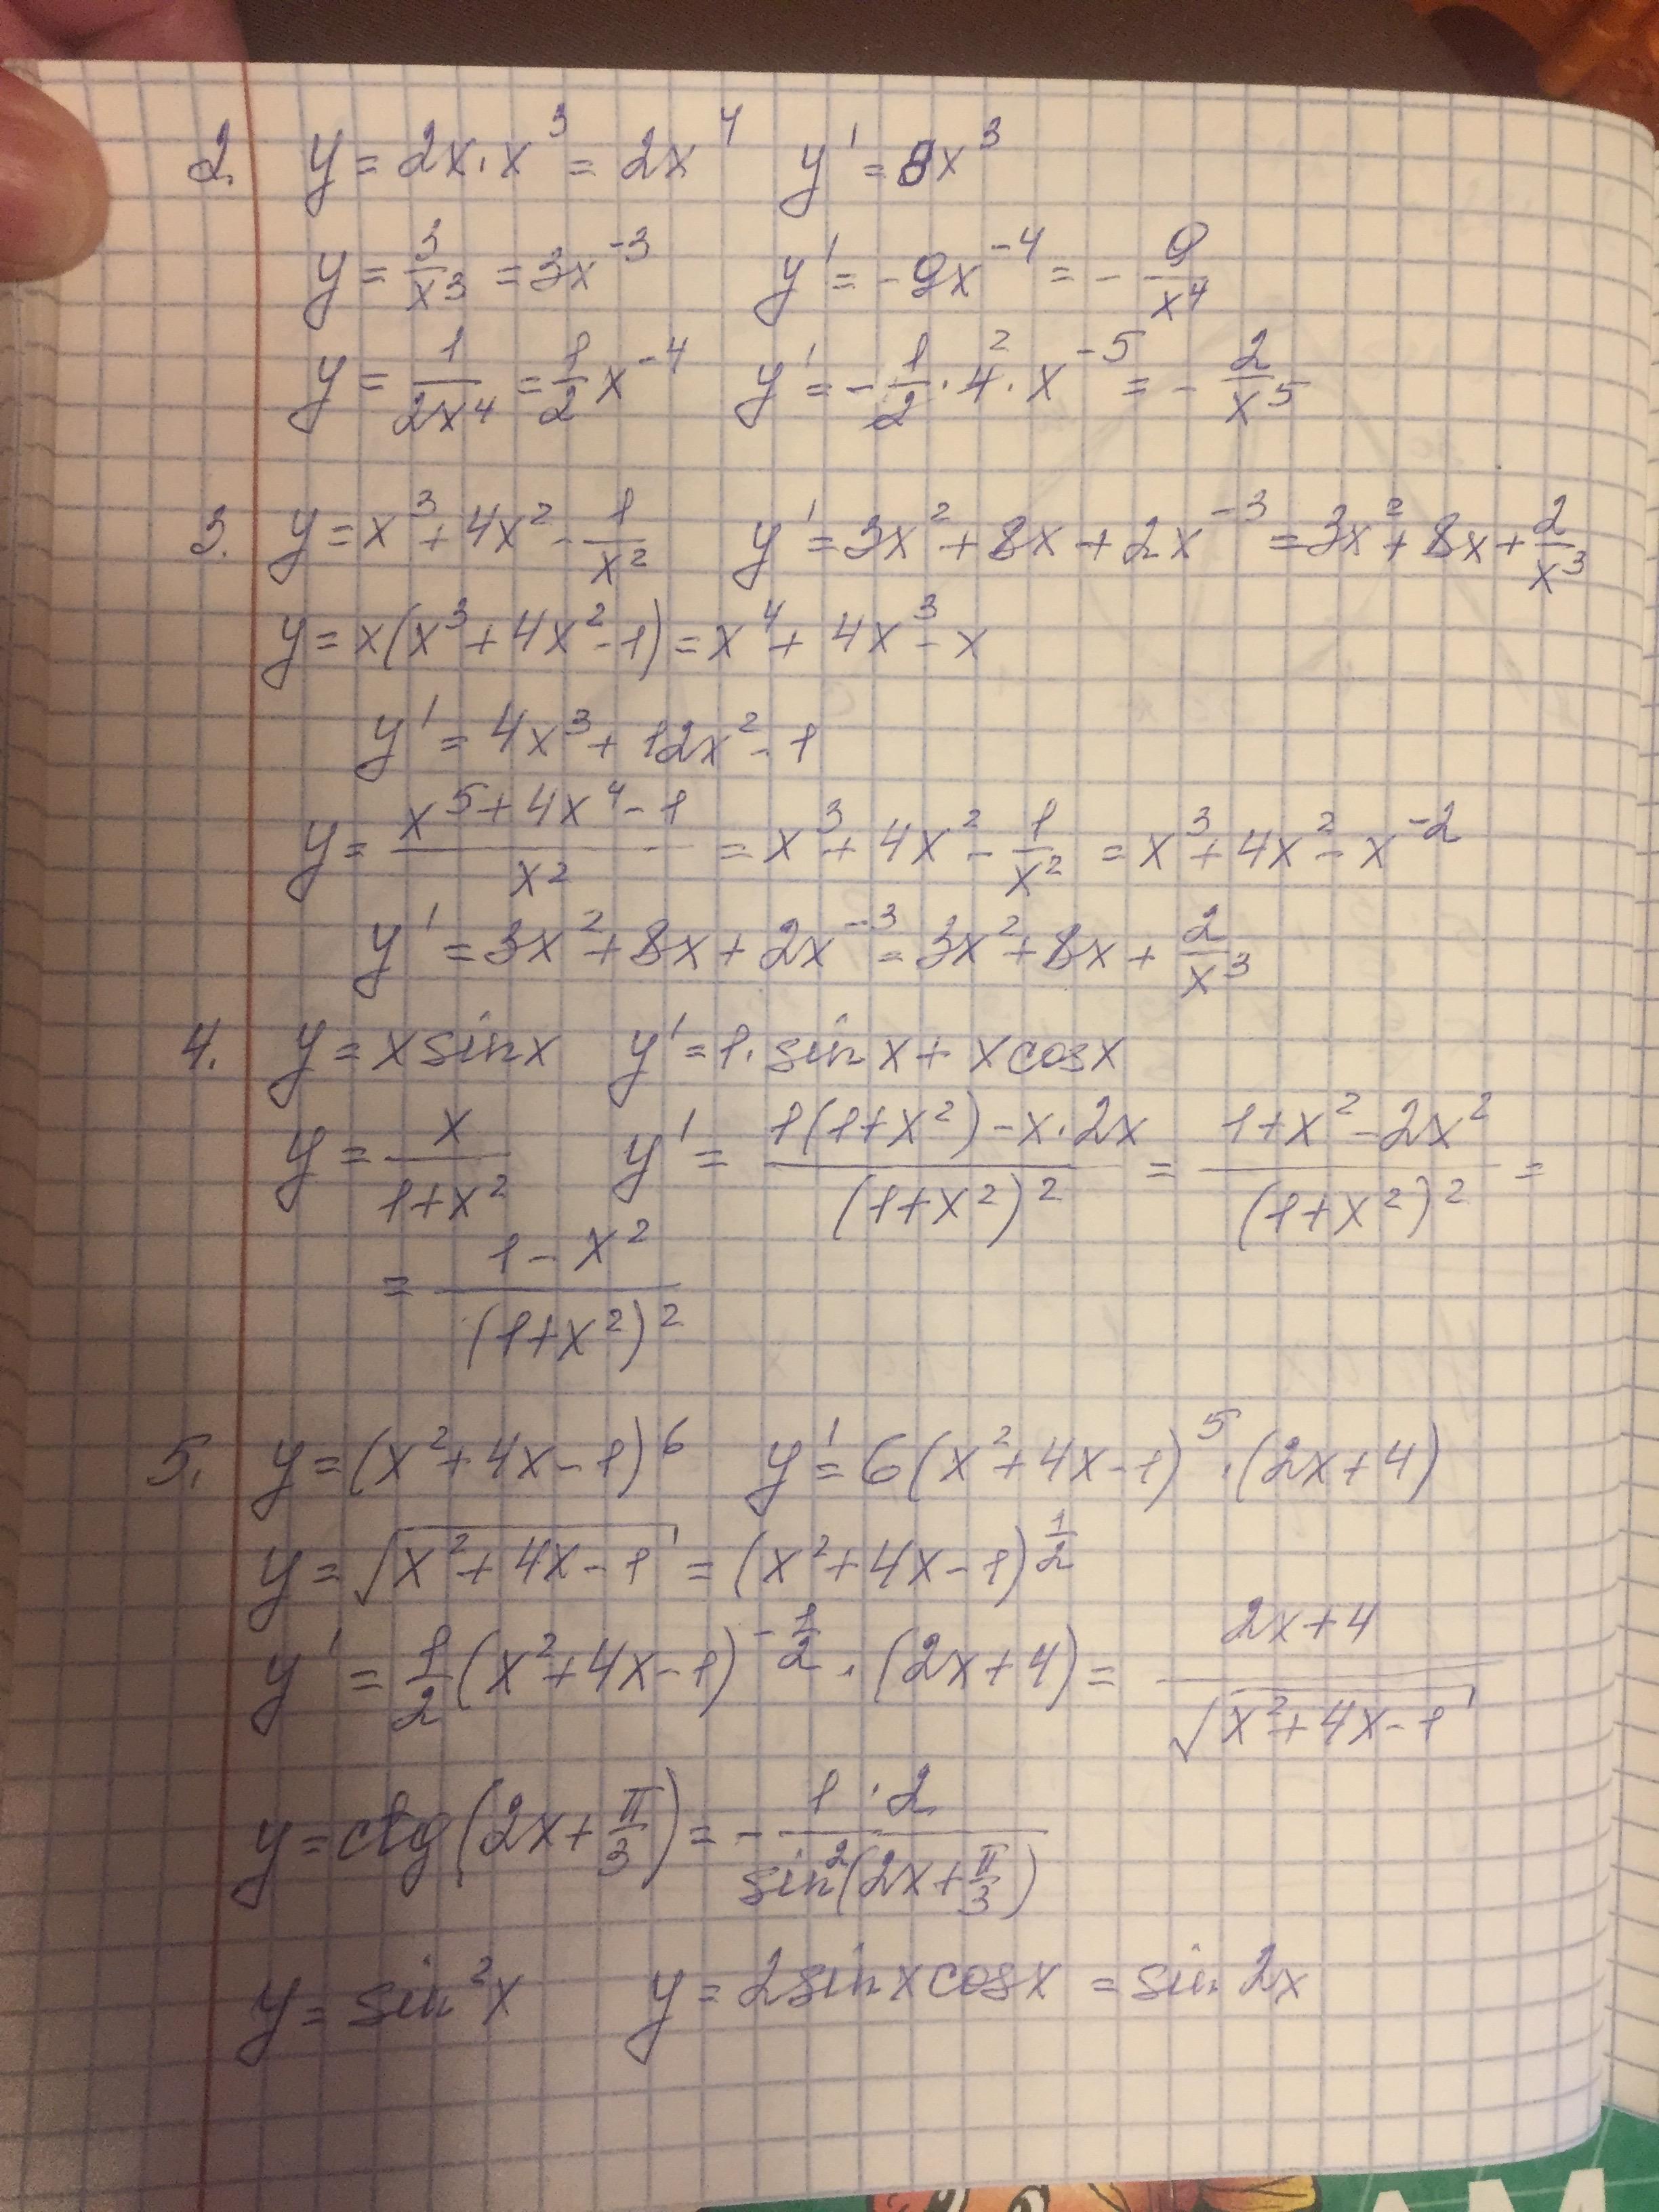 2. y = 2x · x³ = 2x⁴ y' = 8x³
y = 3/x³ = 3x⁻³ y' = -9x⁻⁴ = - 9/x⁴
y = 1/(2x⁴) = 1/2 x⁻⁴ y' = - 1/2 · 4² · x⁻⁵ = - 2/x⁵
3. y = x³ + 4x² - 1/x² y' = 3x² + 8x + 2x⁻³ = 3x² + 8x + 2/x³
y = x(x³ + 4x² - 1) = x⁴ + 4x³ - x
y' = 4x³ + 12x² - 1
y = (x⁵ + 4x⁴ - 1)/x² = x³ + 4x² - 1/x² = x³ + 4x² - x⁻²
y' = 3x² + 8x + 2x⁻³ = 3x² + 8x + 2/x³
4. y = x sin x y' = 1 · sin x + x cos x
y = x/(1+x²) y' = (1(1+x²) - x · 2x)/(1+x²)² = (1+x² - 2x²)/(1+x²)² =
= (1 - x²)/(1+x²)²
5. y = (x² + 4x - 1)⁶ y' = 6(x² + 4x - 1)⁵ · (2x + 4)
y = √(x² + 4x - 1) = (x² + 4x - 1)^(1/2)
y' = 1/2 (x² + 4x - 1)^(-1/2) · (2x + 4) = (2x + 4)/√(x² + 4x - 1)
y = ctg(2x + π/3) = - (1 · 2)/(sin²(2x + π/3))
y = sin²x y = 2 sin x cos x = sin 2x
AM